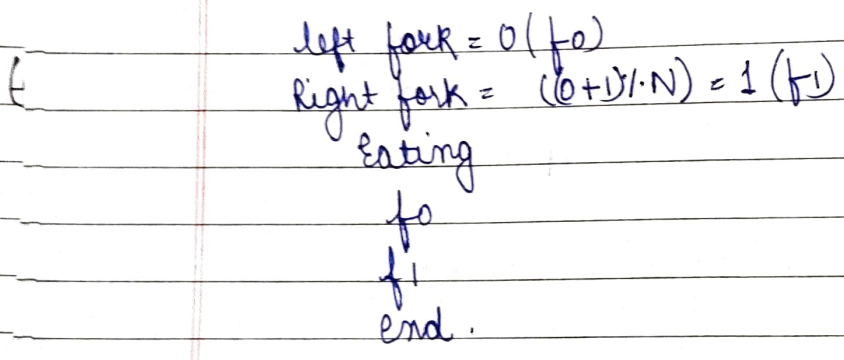 left fork = 0 (f0)
Right fork = ((0+1)%N) = 1 (f1)
Eating
f0
f1
end.